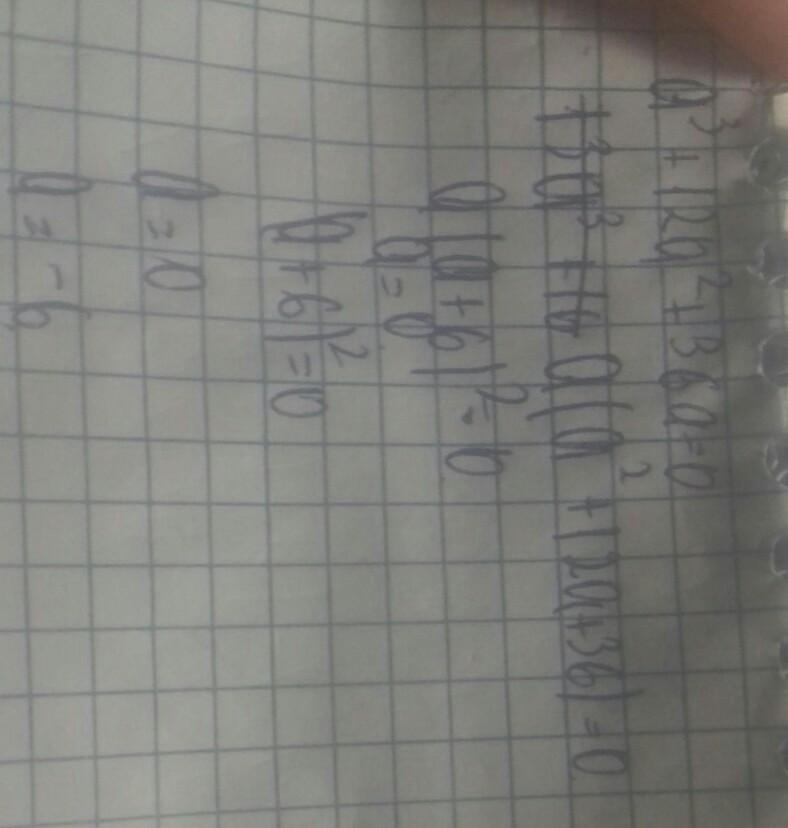 a³ + 12a² + 36a = 0
a(a² + 12a + 36) = 0
a(a + 6)² = 0
a = 0
(a + 6)² = 0
a = 0
a = -6